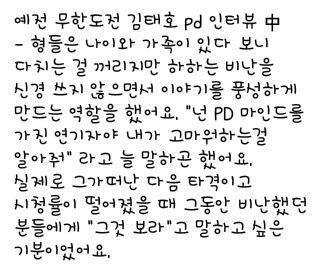 예전 무한도전 김태호 pd 인터뷰 中
- 형들은 나이와 가족이 있다 보니
다치는 걸 꺼리지만 하하는 비난을
신경 쓰지 않으면서 이야기를 풍성하게
만드는 역할을 했어요. "넌 PD 마인드를
가진 연기자야 내가 고마워하는걸
알아줘" 라고 늘 말하곤 했어요.
실제로 그가떠난 다음 타격이고
시청률이 떨어졌을 때 그동안 비난했던
분들에게 "그것 보라"고 말하고 싶은
기분이었어요.